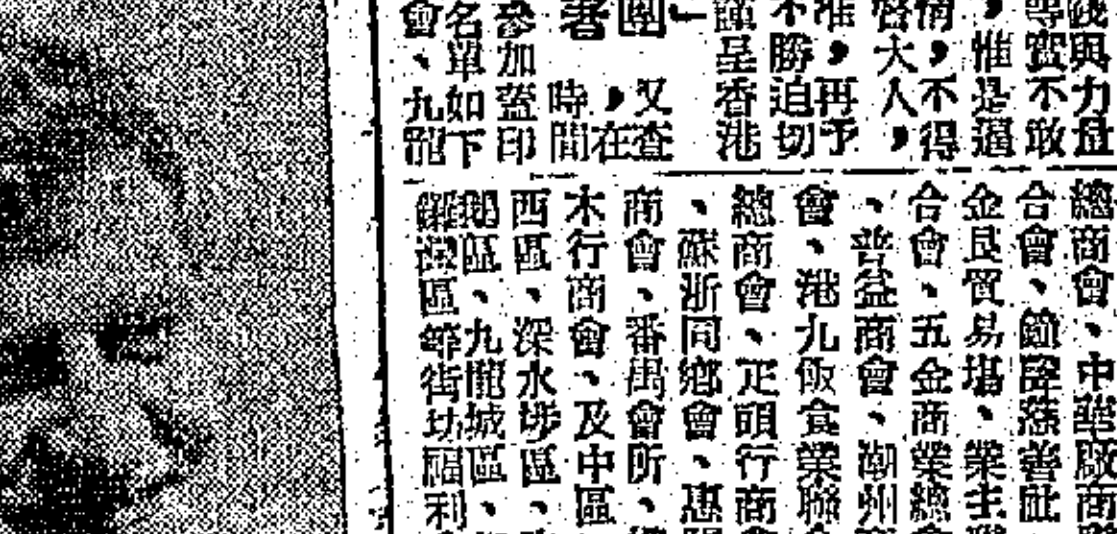 錢與力量
等實不敢
，惟是逼
情，不得
啓大人，
准，再予
不勝迫切
謹呈香港
」
團　又查
　，在
著　時間
參加蓋印
名單如下
會、九龍
總商會、中華廠商聯
合會、鐘聲慈善社
金良貿易場、業主聯
合會、五金商業總會
、普益商會、潮州商
會、港九飯食業聯
總商會、疋頭行商會
、蘇浙同鄉會、惠陽
商會、番禺會所、
木行商會、及中區、
西區、深水埗區、
鵝區、九龍城區、
銅灣區等街坊福利